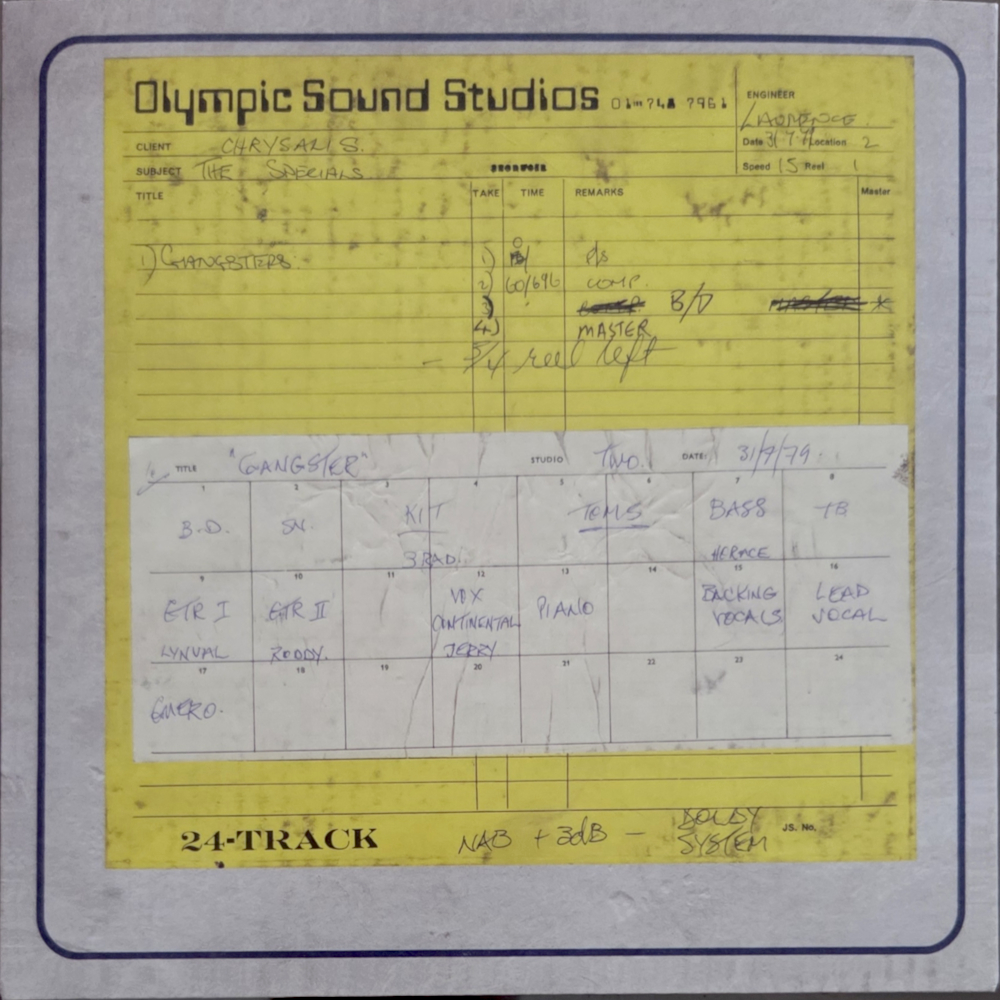 Olympic Sound Studios 01-748 7961
ENGINEER
LAURENCE.
CLIENT CHRYSALIS.
Date 31.7.79 Location 2
SUBJECT THE SPECIALS
Speed 15 Reel 1
TITLE TAKE TIME REMARKS Master
1) GANGSTERS. 1) 0/ F/S
2) 60/696 COMP.
3) B/D *
4) MASTER
- 3/4 reel left
TITLE "GANGSTER" STUDIO TWO. DATE: 31/7/79.
1 2 3 4 5 6 7 8
B.D. SN. KIT TOMS BASS TB
BRAD. HORACE
9 10 11 12 13 14 15 16
GTR I GTR II VOX CONTINENTAL PIANO BACKING VOCALS LEAD VOCAL
LYNVAL RODDY. JERRY
17 18 19 20 21 22 23 24
24-TRACK NAB + 3dB - DOLBY SYSTEM JS. No.